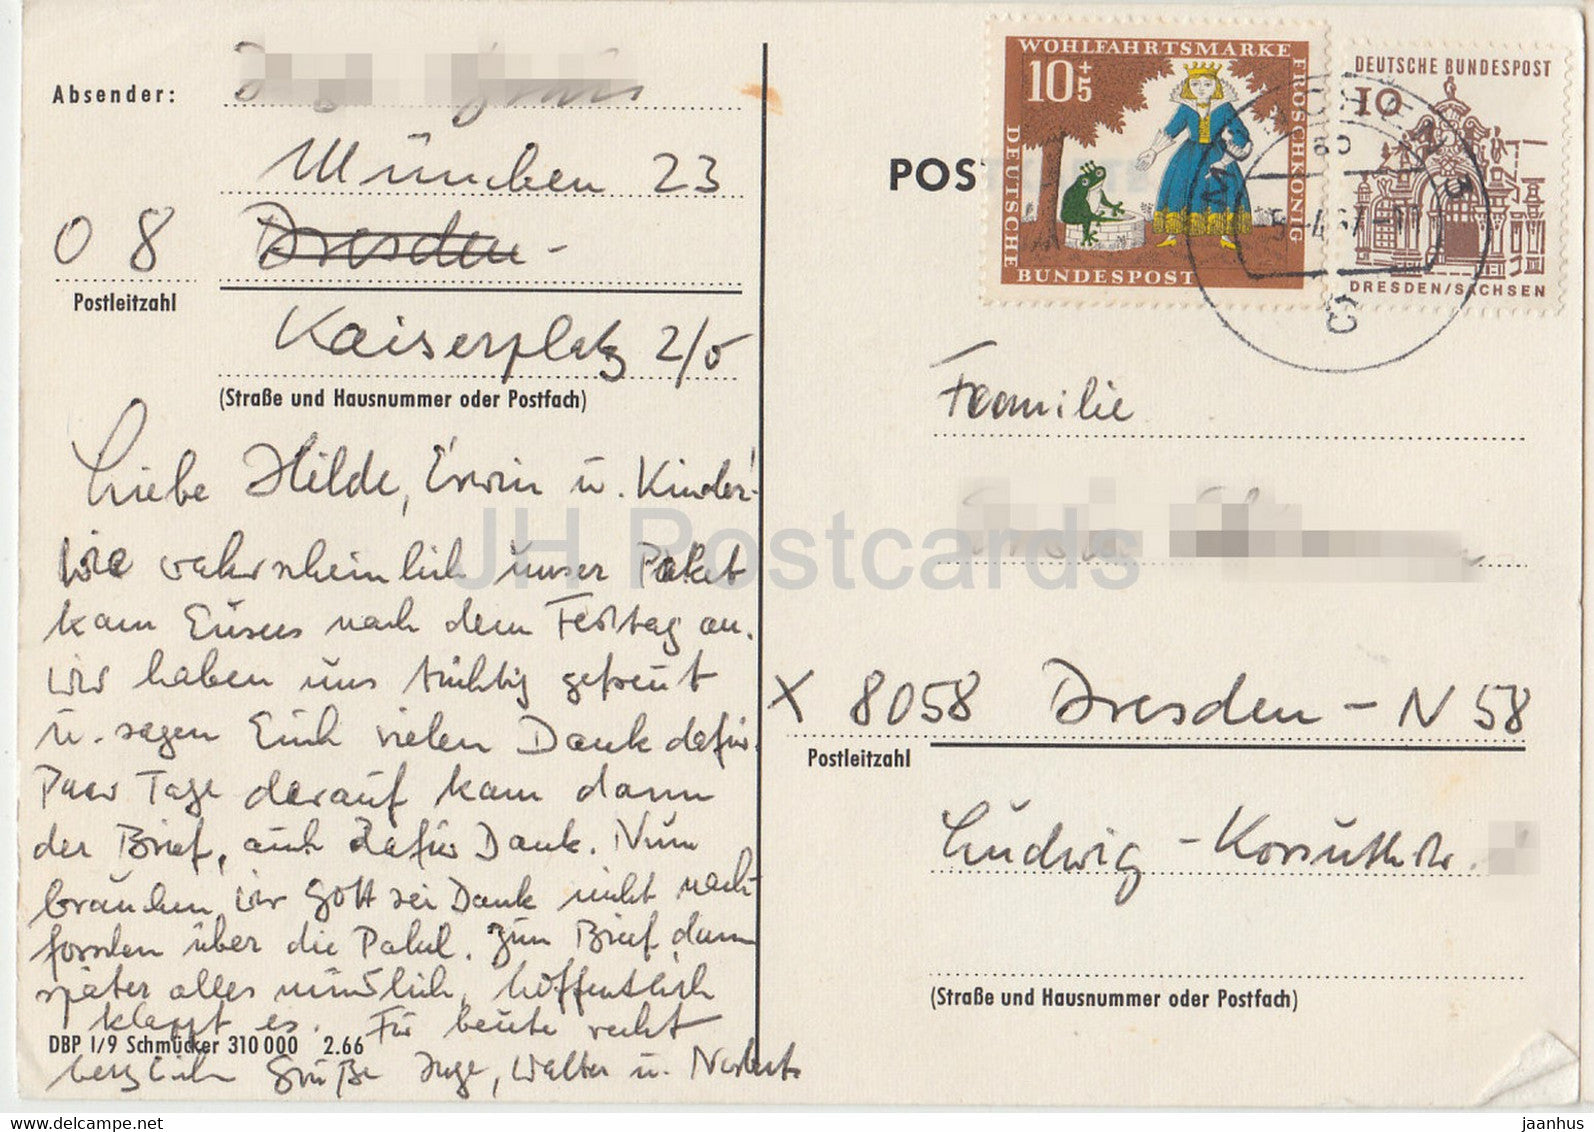 Absender:
München 23
0 8 Dresden -
Postleitzahl
Kaiserplatz 2/0
(Straße und Hausnummer oder Postfach)
Liebe Hilde, Erwin u. Kinder!
Wie wahrscheinlich unser Paket
kam Eueres nach dem Festtag an.
Wir haben uns tüchtig gefreut
u. sagen Euch vielen Dank dafür.
Paar Tage darauf kam dann
der Brief, auch dafür Dank. Nun
brauchen wir Gott sei Dank nicht nach-
forschen über die Paket. Zum Brief dann
später alles mündlich, hoffentlich
klappt es. Für heute recht
herzliche Grüße Inge, Walter u. Norbert
DBP I/9 Schmücker 310 000 2.66
POS
WOHLFAHRTSMARKE
10+5
FROSCHKÖNIG
DEUTSCHE
BUNDESPOST
DEUTSCHE BUNDESPOST
10
DRESDEN/SACHSEN
MÜNCHEN 3
Familie
X 8058 Dresden - N 58
Postleitzahl
Ludwig-Kossuthstr.
(Straße und Hausnummer oder Postfach)
JH Postcards
www.delcampe.net
jaanhus